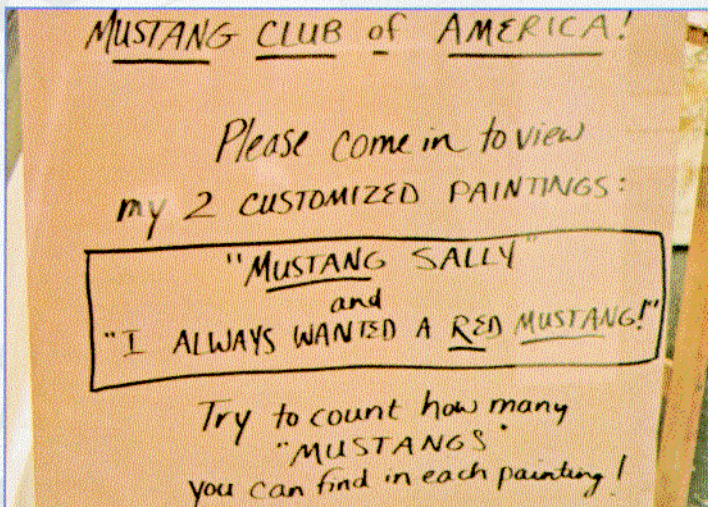 MUSTANG CLUB of AMERICA!
Please come in to view
my 2 CUSTOMIZED PAINTINGS:
"MUSTANG SALLY"
and
"I ALWAYS WANTED A RED MUSTANG!"
Try to count how many
"MUSTANGS"
you can find in each painting!